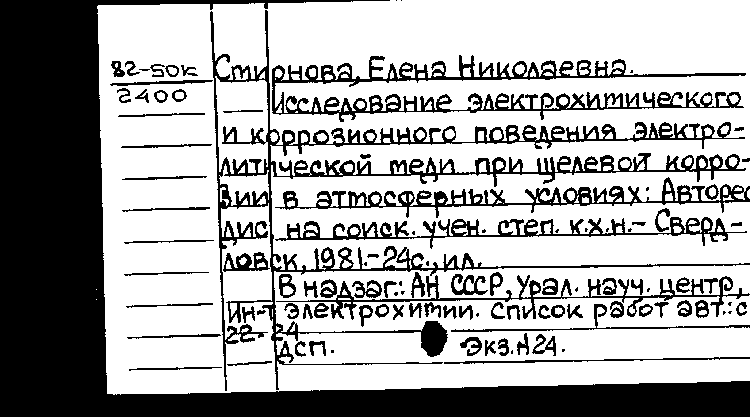 82-50к Смирнова, Елена Николаевна.
2400 Исследование электрохимического
и коррозионного поведения электро-
литической меди при щелевой корро-
зии в атмосферных условиях: Авторе
дис. на соиск. учен. степ. к.х.н.- Сверд-
ловск, 1981.-24с., ил.
В надзаг.: АН СССР, Урал. науч. центр,
Ин-т электрохимии. Список работ авт.: с
22-24
ДСП. Экз.N24.